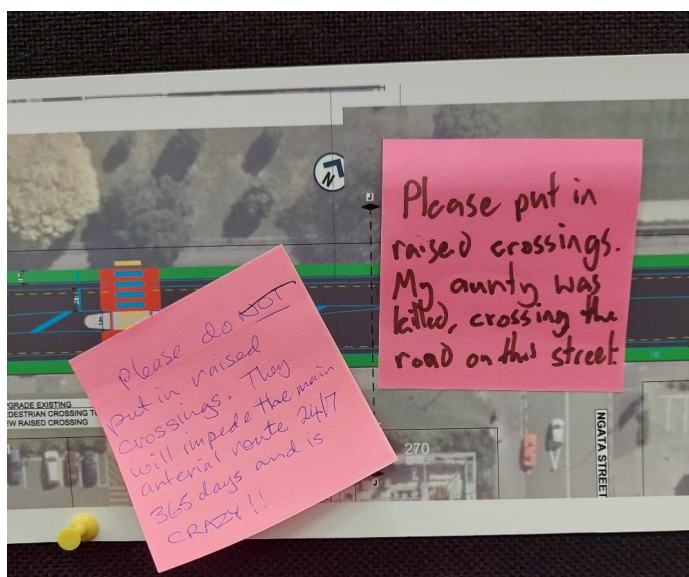 N
J
Please put in
raised crossings.
My aunty was
killed, crossing the
road on this street
please do NOT
put in raised
crossings. They
will impede the main
arterial route 24/7
365 days and is
CRAZY!!
PGRADE EXISTING
EDESTRIAN CROSSING TO
EW RAISED CROSSING
270
J
NGATA STREET